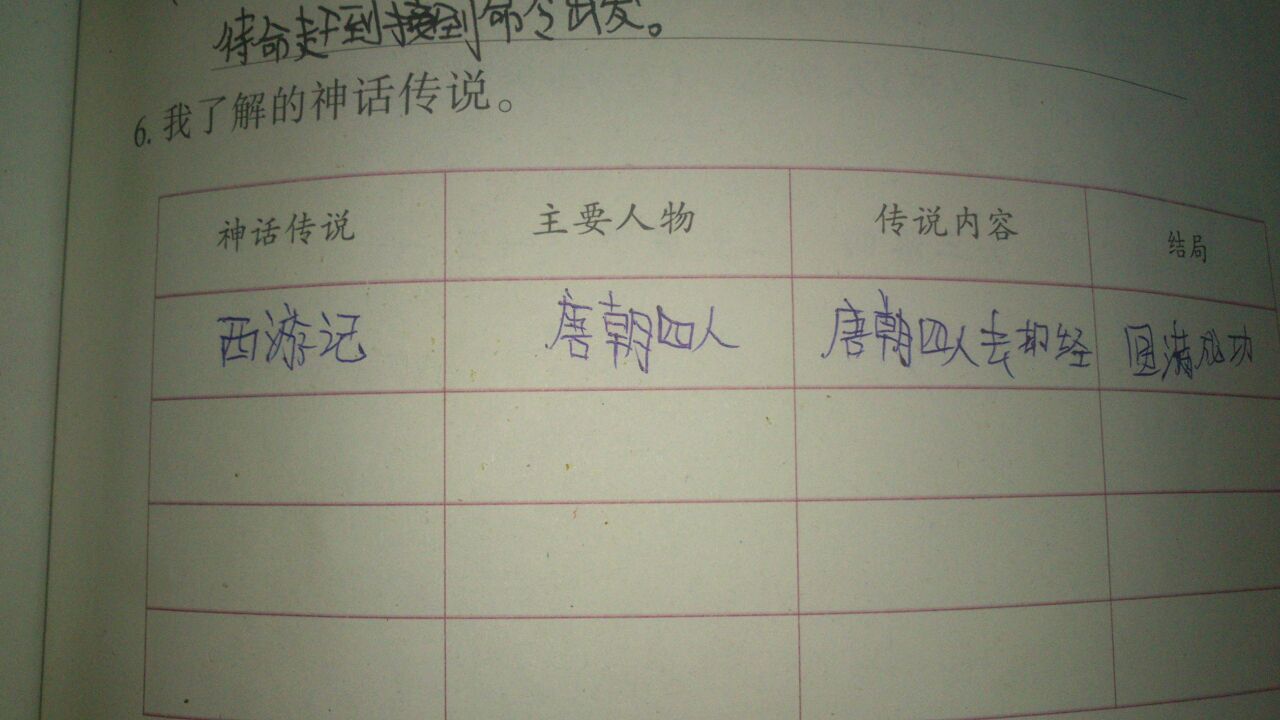 待命赶到接到命令出发。
6. 我了解的神话传说。
神话传说 主要人物 传说内容 结局
西游记 唐朝四人 唐朝四人去取经 圆满成功